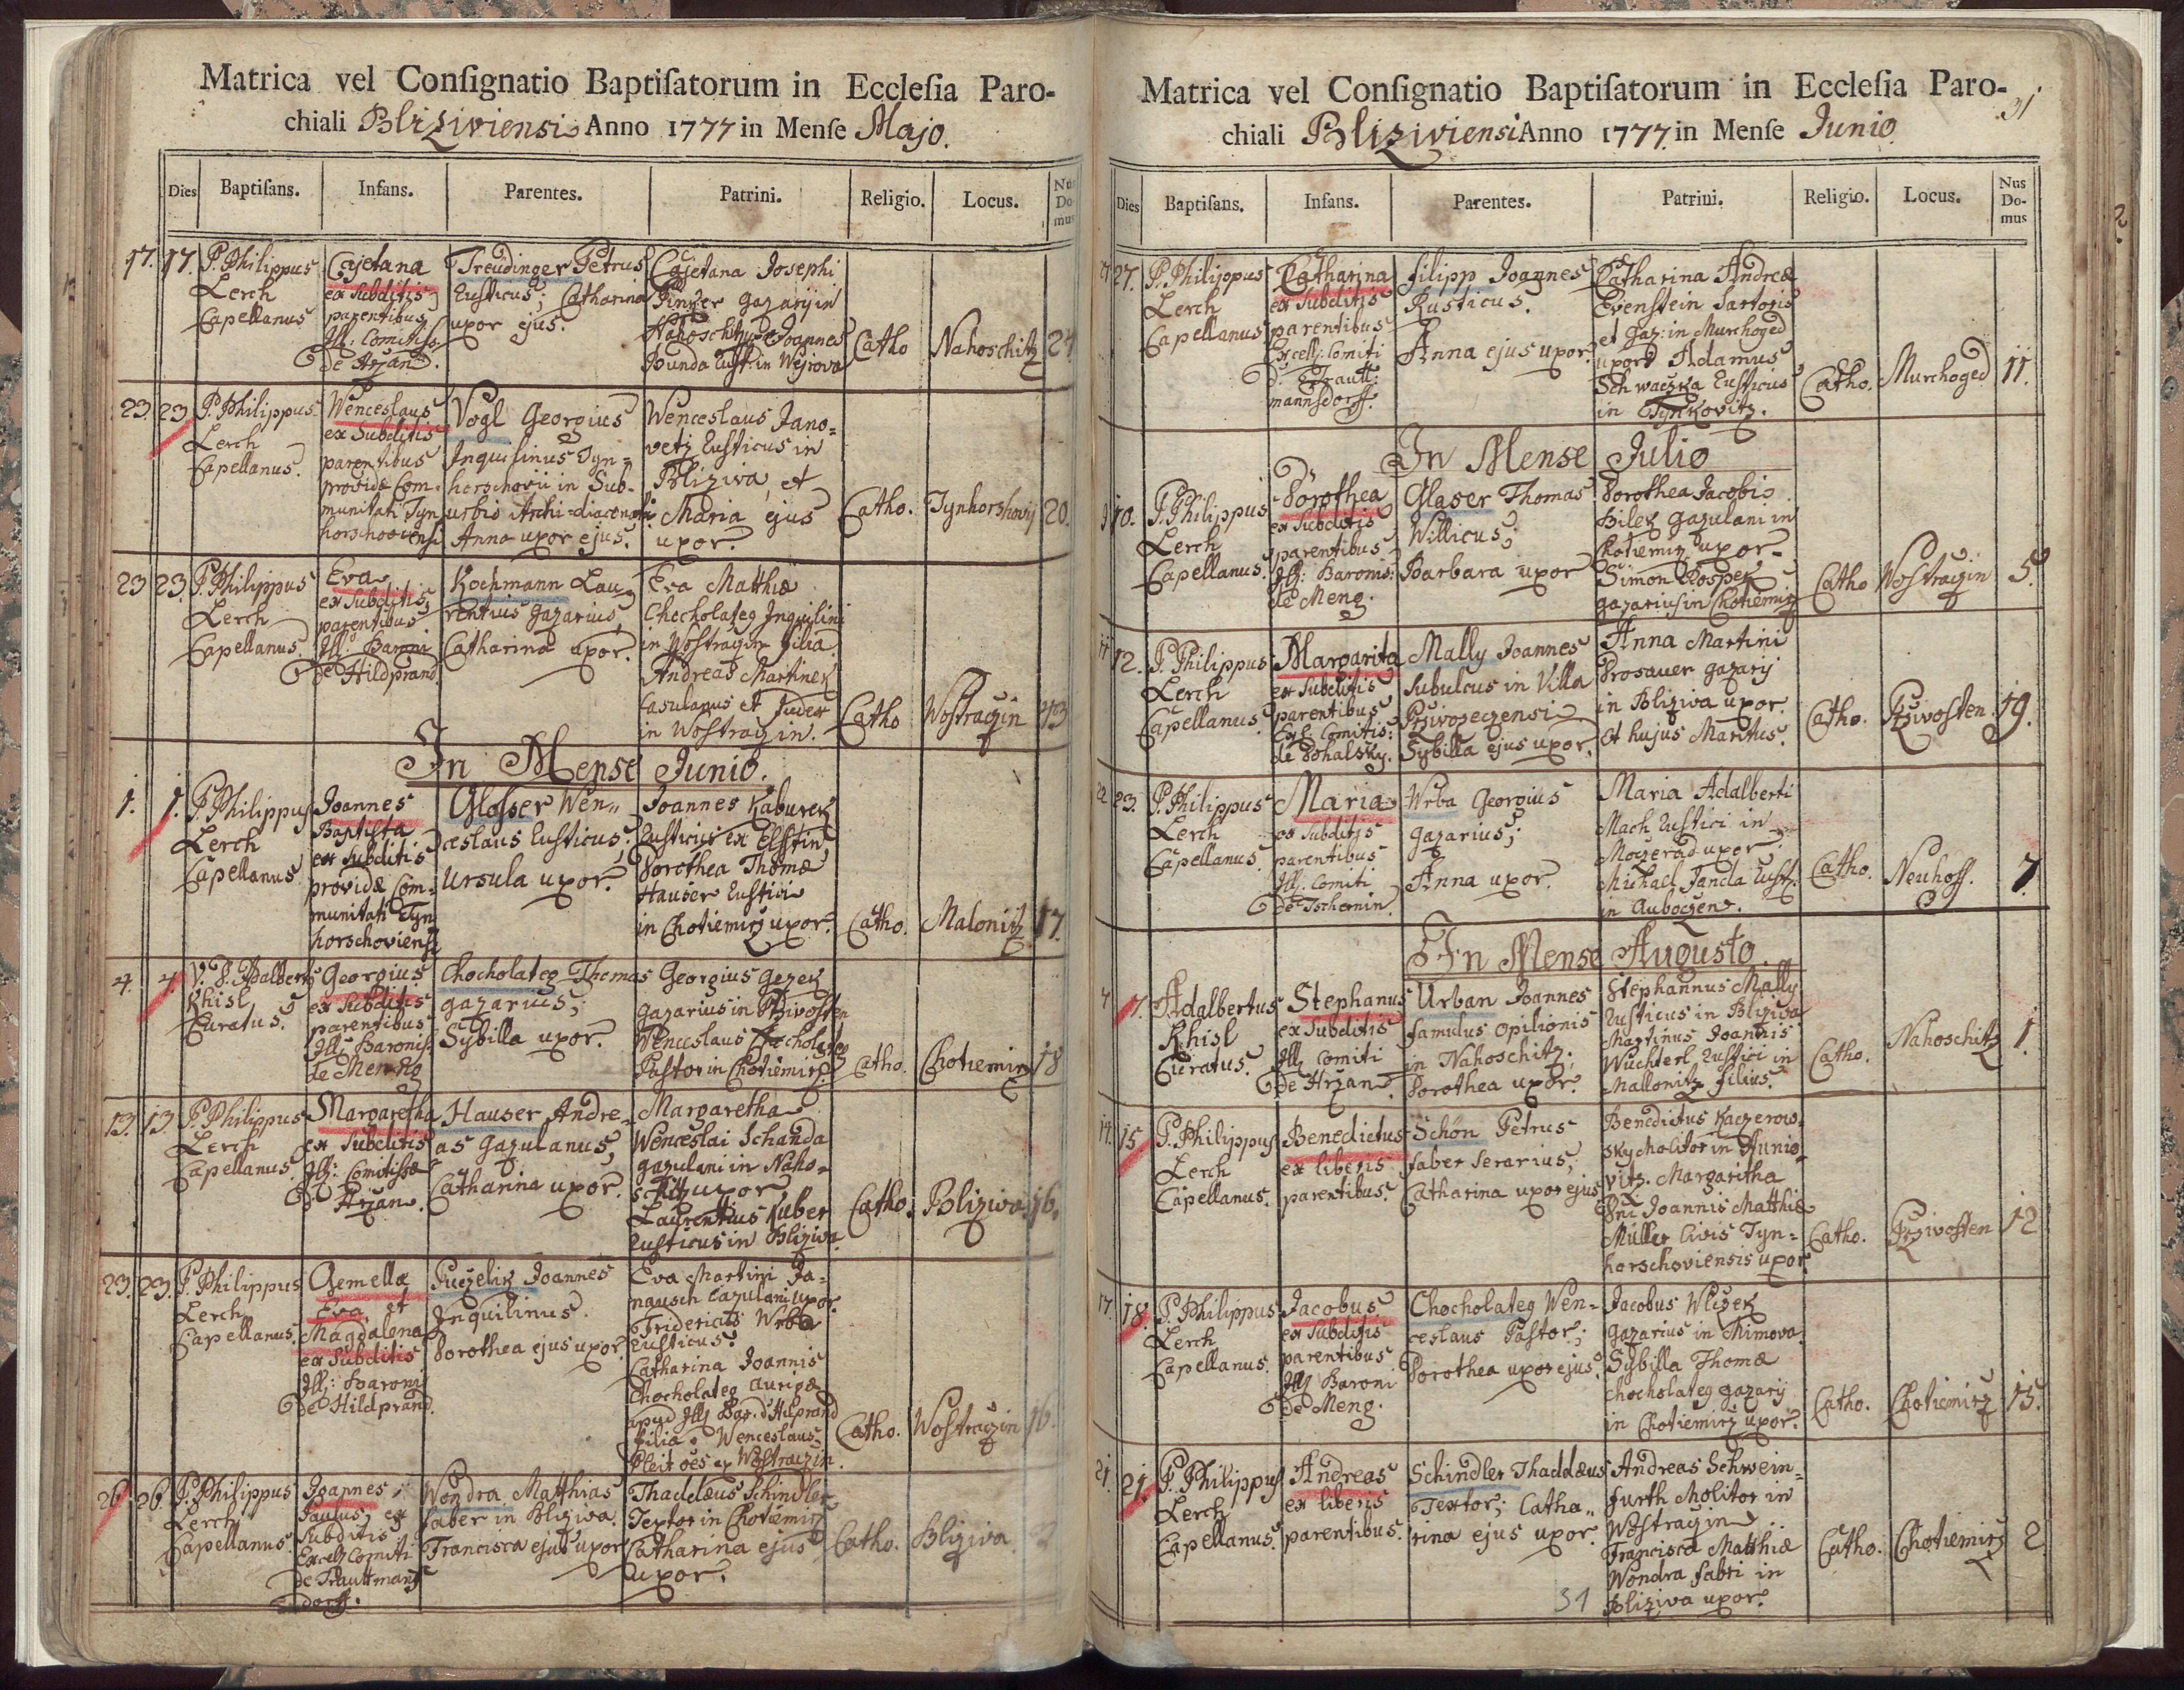 Matrica vel Consignatio Baptisatorum in Ecclesia Paro-
chiali Bliziviensi Anno 1777 in Mense Majo.
Dies Baptisans. Infans. Parentes. Patrini. Religio. Locus. Nus Do- mus
17. 17. P. Philippus
Lerch
Capellanus
Cajetana
ex subditis
parentibus
Ill: Comitissæ
de Hrzan.
Treudinger Petrus
Rusticus; Catharina
uxor ejus.
Cajetana Josephi
Pinker gazarij in
Nahoschitz uxor Joannes
Bunda Rust: in Wejrova
Catho Nahoschitz 24
23. 23. P. Philippus
Lerch
Capellanus.
Wenceslaus
ex Subditis
parentibus
providæ Com-
munitati Tyn
horschoviensi
Vogl Georgius
Inquilinus Tyn=
horschovii in Sub-
urbio Archi-diaconali
Anna uxor ejus.
Wenceslaus Jano=
vetz Rusticus in
Bliziva, et
Maria ejus
uxor.
Catho. Tynhorshovij 20.
23 23. P. Philippus
Lerch
Capellanus.
Eva
ex Subditis
parentibus
Ill: Baroni
de Hildprand.
Kochmann Lau-
rentius gazarius,
Catharina uxor.
Eva Matthiæ
Chocholateg Inquilini
in Wostraczin filia.
Andreas Martinek
Casulanus et Judex
in Wostraczin.
Catho Wostraczin 43
In Mense Junio.
1. 1. P. Philippus
Lerch
Capellanus
Joannes
Baptista
ex subditis
providæ Com-
munitati Tyn
horschoviensi
Glosser Wen=
ceslaus Rusticus;
Ursula uxor.
Joannes Kaburek
Rusticus ex Elstin
Dorothea Thomæ
Hauser Rustici
in Chotiemirz uxor.
Catho. Malonitz 17.
4. 4. V. P. Adalbertus
Khisl
Curatus.
Georgius
ex Subditis
parentibus
Ill: Baronis
de Meng
Chocholateg Thomas
gazarius;
Sybilla uxor.
Georgius Gezek
gazarius in Przivosten
Wenceslaus Chocholateg
Pastor in Chotiemirz.
Catho. Chotiemirz 18
13. 13. P. Philippus
Lerch
Capellanus.
Margaretha
ex subditis
Ill: Comitissæ
de Hrzan.
Hauser Andre=
as gazulanus,
Catharina uxor.
Margaretha
Wenceslai Schanda
gazulani in Naho-
schitz uxor
Laurentius Huber
Rusticus in Bliziva.
Catho. Bliziva. 16.
23. 23. P. Philippus
Lerch
Capellanus.
Gemellæ
Eva, et
Magdalena
ex Subditis
Ill: Baroni
de Hildprand.
Puczelik Joannes
Inquilinus.
Dorothea ejus uxor.
Eva Martini Ja-
nausch Cazulani uxor.
Fridericus Wrba
Rusticus.
Catharina Joannis
Chocholateg aurigæ
apud Ill: Bar. d Hilprand
filia. Wenceslaus
Pleit oes ex Wostraczin.
Catho. Wostraczin 16.
26. 26. P. Philippus
Lerch
Capellanus.
Joannes,
Paulus, ex
subditis
Excell: Comiti
de Trauttmans
dorff.
Wondra Matthias
faber in Bliziva.
Francisca ejus uxor
Thaddæus Schindler
Textor in Chotiemirz
Catharina ejus
uxor.
Catho. Bliziva. 2
Matrica vel Consignatio Baptisatorum in Ecclesia Paro-
31
chiali Bliziviensi Anno 1777. in Mense Junio
Dies Baptisans. Infans. Parentes. Patrini. Religio. Locus. Nus Do- mus
27. 27. P. Philippus
Lerch
Capellanus
Catharina
ex subditis
parentibus
Excell: Comiti
d: Trautt:
mannsdorff.
Filipp Joannes
Rusticus.
Anna ejus uxor.
Catharina Andreæ
Evenstein Sartoris
et gaz: in Murchoged
uxor Adamus
Schwaczka Rusticus
in Tynkovitz.
Catho. Murchoged 11.
In Mense Julio
9 10. P. Philippus
Lerch
Capellanus.
Dorothea
ex Subditis
parentibus
Ill: Baronis:
de Meng.
Glaser Thomas
Willicus;
Barbara uxor
Dorothea Jacobi
Bilek gazulani in
Chotiemirz uxor.
Simon Pospek
gazarius in Chotiemirz
Catho Wostraczin 5.
11 12. P. Philippus
Lerch
Capellanus.
Margarita
ex subditis
parentibus
Exc. Comitis:
de Bohalsky.
Mally Joannes
Subulcus in Villa
Przivoseczensi
Sybilla ejus uxor.
Anna Martini
Prosauer gazarij
in Bliziva uxor.
et hujus Maritus.
Catho. Przivosten. 19.
22 23. P. Philippus
Lerch
Capellanus.
Maria
ex subditis
parentibus
Ill: Comiti
de Tschernin.
Wrba Georgius
gazarius;
Anna uxor.
Maria Adalberti
Mach Rustici in
Moczerad uxor.
Michael Janda Rust:
in Auboczen.
Catho. Neuhoff. 7.
In Mense Augusto.
4 7. Adalbertus
Khisl
Curatus.
Stephanus
ex Subditis
Ill Comiti
de Hrzan.
Urban Joannes
famulus opilionis
in Nahoschitz;
Dorothea uxor.
Stephannus Mally
Rusticus in Bliziva
Martinus Joannis
Wuchterl Rustici in
Mallonitz filius.
Catho. Nahoschitz 1.
14. 15. P. Philippus
Lerch
Capellanus.
Benedictus
ex liberis
parentibus.
Schön Petrus
faber serarius,
Catharina uxor ejus
Benedictus Kaczerow-
sky Molitor in Hunio-
vitz. Margaritha
Dni Joannis Matthiæ
Müller Civis Tyn=
horschoviensis uxor
Catho. Przivosten 12
17. 18. P. Philippus
Lerch
Capellanus.
Jacobus
ex subditis
parentibus
Ill Baroni
de Meng.
Chocholateg Wen-
ceslaus Pastor;
Dorothea uxor ejus.
Jacobus Wlizek
gazarius in Mimova.
Sybilla Thomæ
Chocholateg gazarij
in Chotiemirz uxor.
Catho. Chotiemirz 15.
21. 21. P. Philippus
Lerch
Capellanus.
Andreas
ex liberis
parentibus.
Schindler Thaddæus
Textor; Catha=
rina ejus uxor.
Andreas Schwein=
furth Molitor in
Wostraczin
Francisca Matthiæ
Wondra fabri in
Bliziva uxor.
Catho. Chotiemirz 2
31